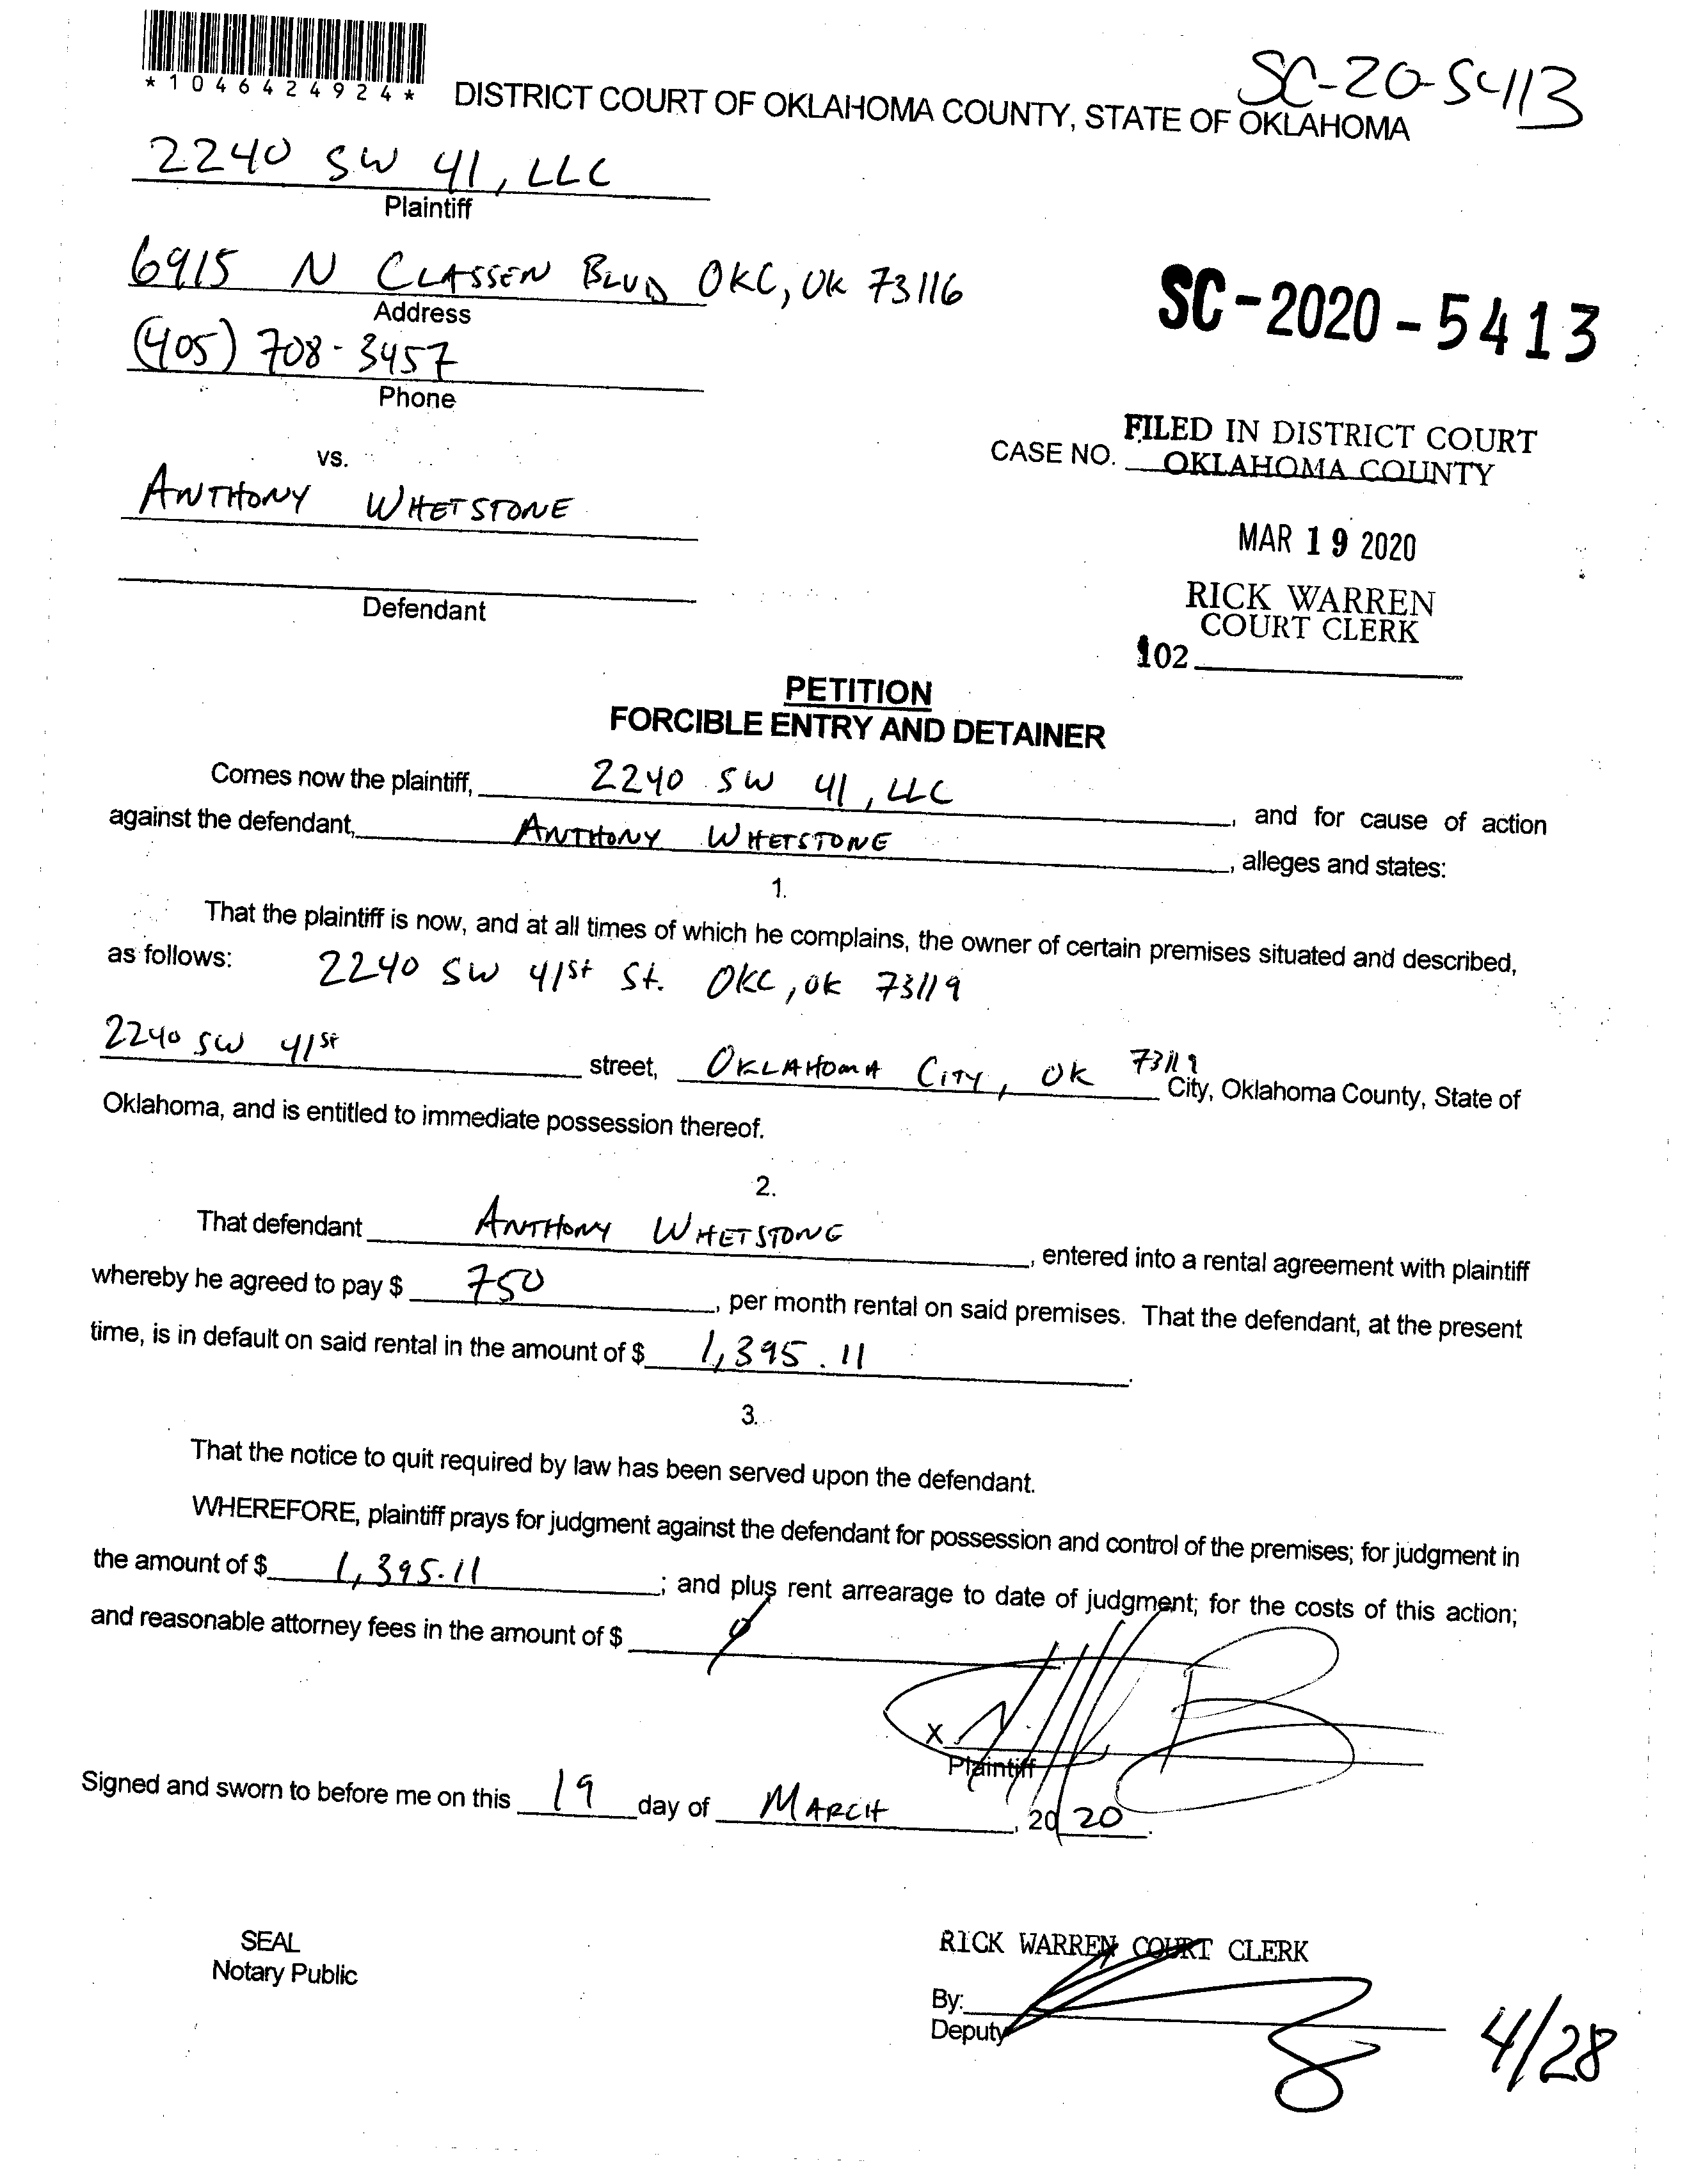 *1046424924*
SC-20-5413
DISTRICT COURT OF OKLAHOMA COUNTY, STATE OF OKLAHOMA
2240 SW 41, LLC
Plaintiff
6915 N CLASSEN BLVD OKC, OK 73116
Address
SC-2020-5413
(405) 708-3457
Phone
FILED IN DISTRICT COURT
CASE NO. OKLAHOMA COUNTY
vs.
ANTHONY WHETSTONE
MAR 19 2020
Defendant
RICK WARREN
COURT CLERK
102
PETITION
FORCIBLE ENTRY AND DETAINER
Comes now the plaintiff, 2240 SW 41, LLC, and for cause of action
against the defendant, ANTHONY WHETSTONE, alleges and states:
1.
That the plaintiff is now, and at all times of which he complains, the owner of certain premises situated and described,
as follows: 2240 SW 41st St. OKC, OK 73119
2240 SW 41st street, OKLAHOMA CITY, OK 73119 City, Oklahoma County, State of
Oklahoma, and is entitled to immediate possession thereof.
2.
That defendant ANTHONY WHETSTONE, entered into a rental agreement with plaintiff
whereby he agreed to pay $ 750, per month rental on said premises. That the defendant, at the present
time, is in default on said rental in the amount of $ 1,395.11.
3.
That the notice to quit required by law has been served upon the defendant.
WHEREFORE, plaintiff prays for judgment against the defendant for possession and control of the premises; for judgment in
the amount of $ 1,395.11; and plus rent arrearage to date of judgment; for the costs of this action;
and reasonable attorney fees in the amount of $
X
Plaintiff
Signed and sworn to before me on this 19 day of MARCH, 2020.
SEAL
Notary Public
RICK WARREN COURT CLERK
By:
Deputy
4/28